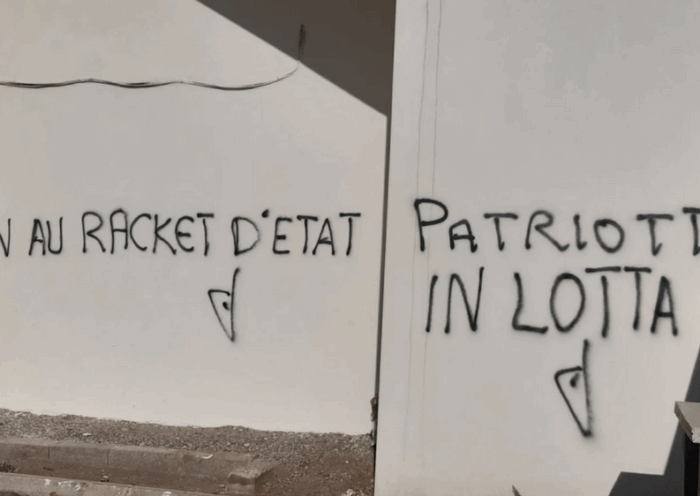 N AU RACKET D'ETAT
PATRIOTT
IN LOTTA